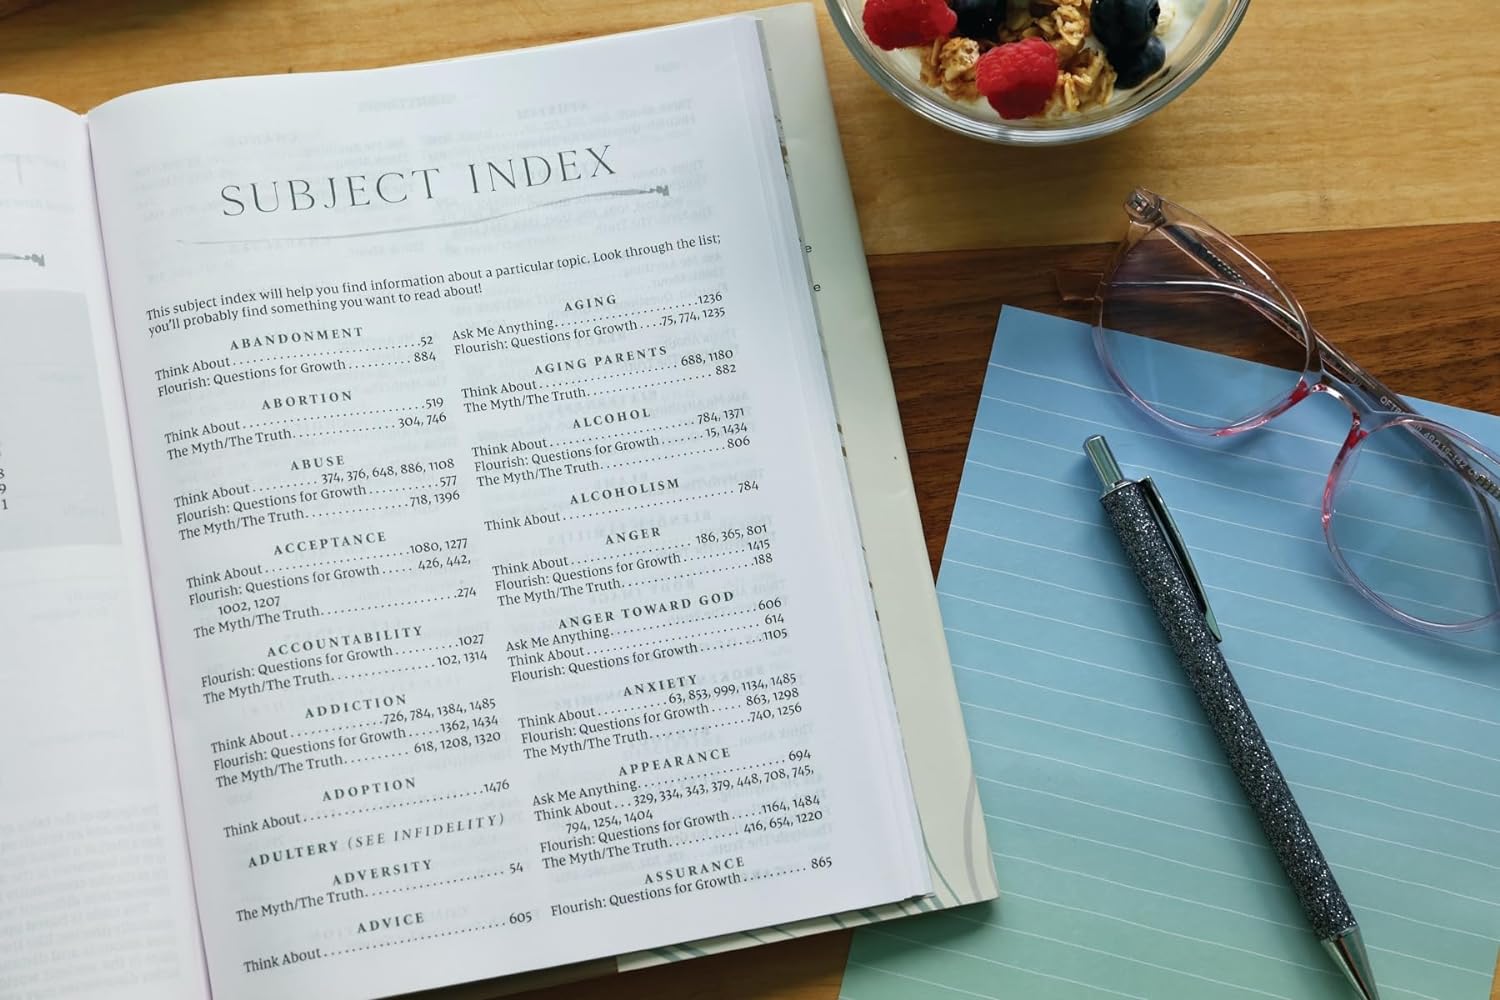 SUBJECT INDEX
This subject index will help you find information about a particular topic. Look through the list;
you'll probably find something you want to read about!
ABANDONMENT
Think About..................52
Flourish: Questions for Growth........884
ABORTION
Think About..................519
The Myth/The Truth..............304, 746
ABUSE
Think About.........374, 376, 648, 886, 1108
Flourish: Questions for Growth..........577
The Myth/The Truth.............718, 1396
ACCEPTANCE
Think About...............1080, 1277
Flourish: Questions for Growth.....426, 442,
1002, 1207
The Myth/The Truth..................274
ACCOUNTABILITY
Flourish: Questions for Growth........1027
The Myth/The Truth.............102, 1314
ADDICTION
Think About...........726, 784, 1384, 1485
Flourish: Questions for Growth.....1362, 1434
The Myth/The Truth........618, 1208, 1320
ADOPTION
Think About..................1476
ADULTERY (SEE INFIDELITY)
ADVERSITY
The Myth/The Truth..................54
ADVICE
Think About..................605
AGING
Ask Me Anything..................1236
Flourish: Questions for Growth....75, 774, 1235
AGING PARENTS
Think About..................688, 1180
The Myth/The Truth..................882
ALCOHOL
Think About..................784, 1371
Flourish: Questions for Growth.......15, 1434
The Myth/The Truth..................806
ALCOHOLISM
Think About..................784
ANGER
Think About.............186, 365, 801
Flourish: Questions for Growth........1415
The Myth/The Truth..................188
ANGER TOWARD GOD
Ask Me Anything..................606
Think About..................614
Flourish: Questions for Growth........1105
ANXIETY
Think About..........63, 853, 999, 1134, 1485
Flourish: Questions for Growth.....863, 1298
The Myth/The Truth.............740, 1256
APPEARANCE
Ask Me Anything..................694
Think About...329, 334, 343, 379, 448, 708, 745,
794, 1254, 1404
Flourish: Questions for Growth.....1164, 1484
The Myth/The Truth........416, 654, 1220
ASSURANCE
Flourish: Questions for Growth.........865